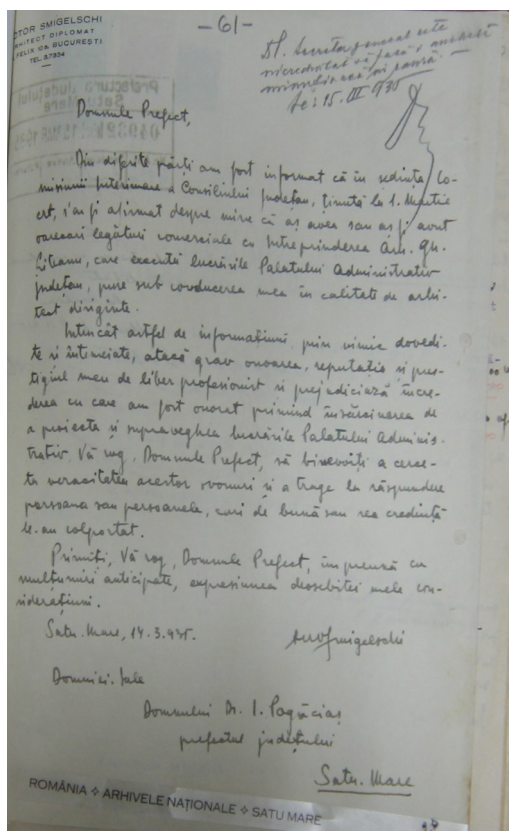 CTOR SMIGELSCHI
HITECT DIPLOMAT
FELIX 10A BUCUREȘTI
TEL. 57934
-61-
Dl. Secretar general este
să facă o anchetă
15. III 935
Prefectura Județului
Satu Mare
Domnule Prefect,
Din diferite părți am fost informat că în ședința Co-
misiunii Interimare a Consiliului Județan, ținută la 1. Martie
crt, s'ar fi afirmat despre mine că aș avea sau aș fi avut
oarecari legături comerciale cu Intreprinderea Arh. Gh.
Liteanu, care execută lucrările Palatului Administrativ
județan, puse sub conducerea mea în calitate de arhi-
tect diriginte.
Intrucât astfel de informațiuni, prin nimic dovedi-
te și întemeiate, atacă grav onoarea, reputația și pres-
tigiul meu de liber profesionist și prejudiciază încre-
derea cu care am fost onorat primind însărcinarea de
a proiecta și supraveghea lucrările Palatului Adminis-
trativ, Vă rog, Domnule Prefect, să binevoiți a cerce-
ta veracitatea acestor svonuri și a trage la răspundere
persoana sau persoanele, cari de bună sau rea credință
le-au colportat.
Primiți, Vă rog, Domnule Prefect, împreună cu
mulțumiri anticipate, expresiunea deosebitei mele con-
siderațiuni.
Satu-Mare, 14.3.935.
Smigelschi
Domniei-Sale
Domnului Dr. I. Pogăciaș
prefectul județului
Satu-Mare
ROMÂNIA ❖ ARHIVELE NAȚIONALE ❖ SATU MARE